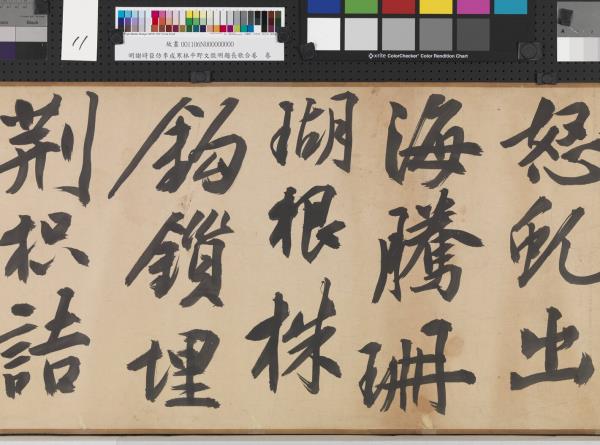 Black
11
故畫 001106N000000000
明謝時臣仿李成寒林平野文徵明題長歌合卷 卷
x-rite ColorChecker Color Rendition Chart
怒虬出
海騰珊
瑚根株
鈎鎖埋
荆枳詰